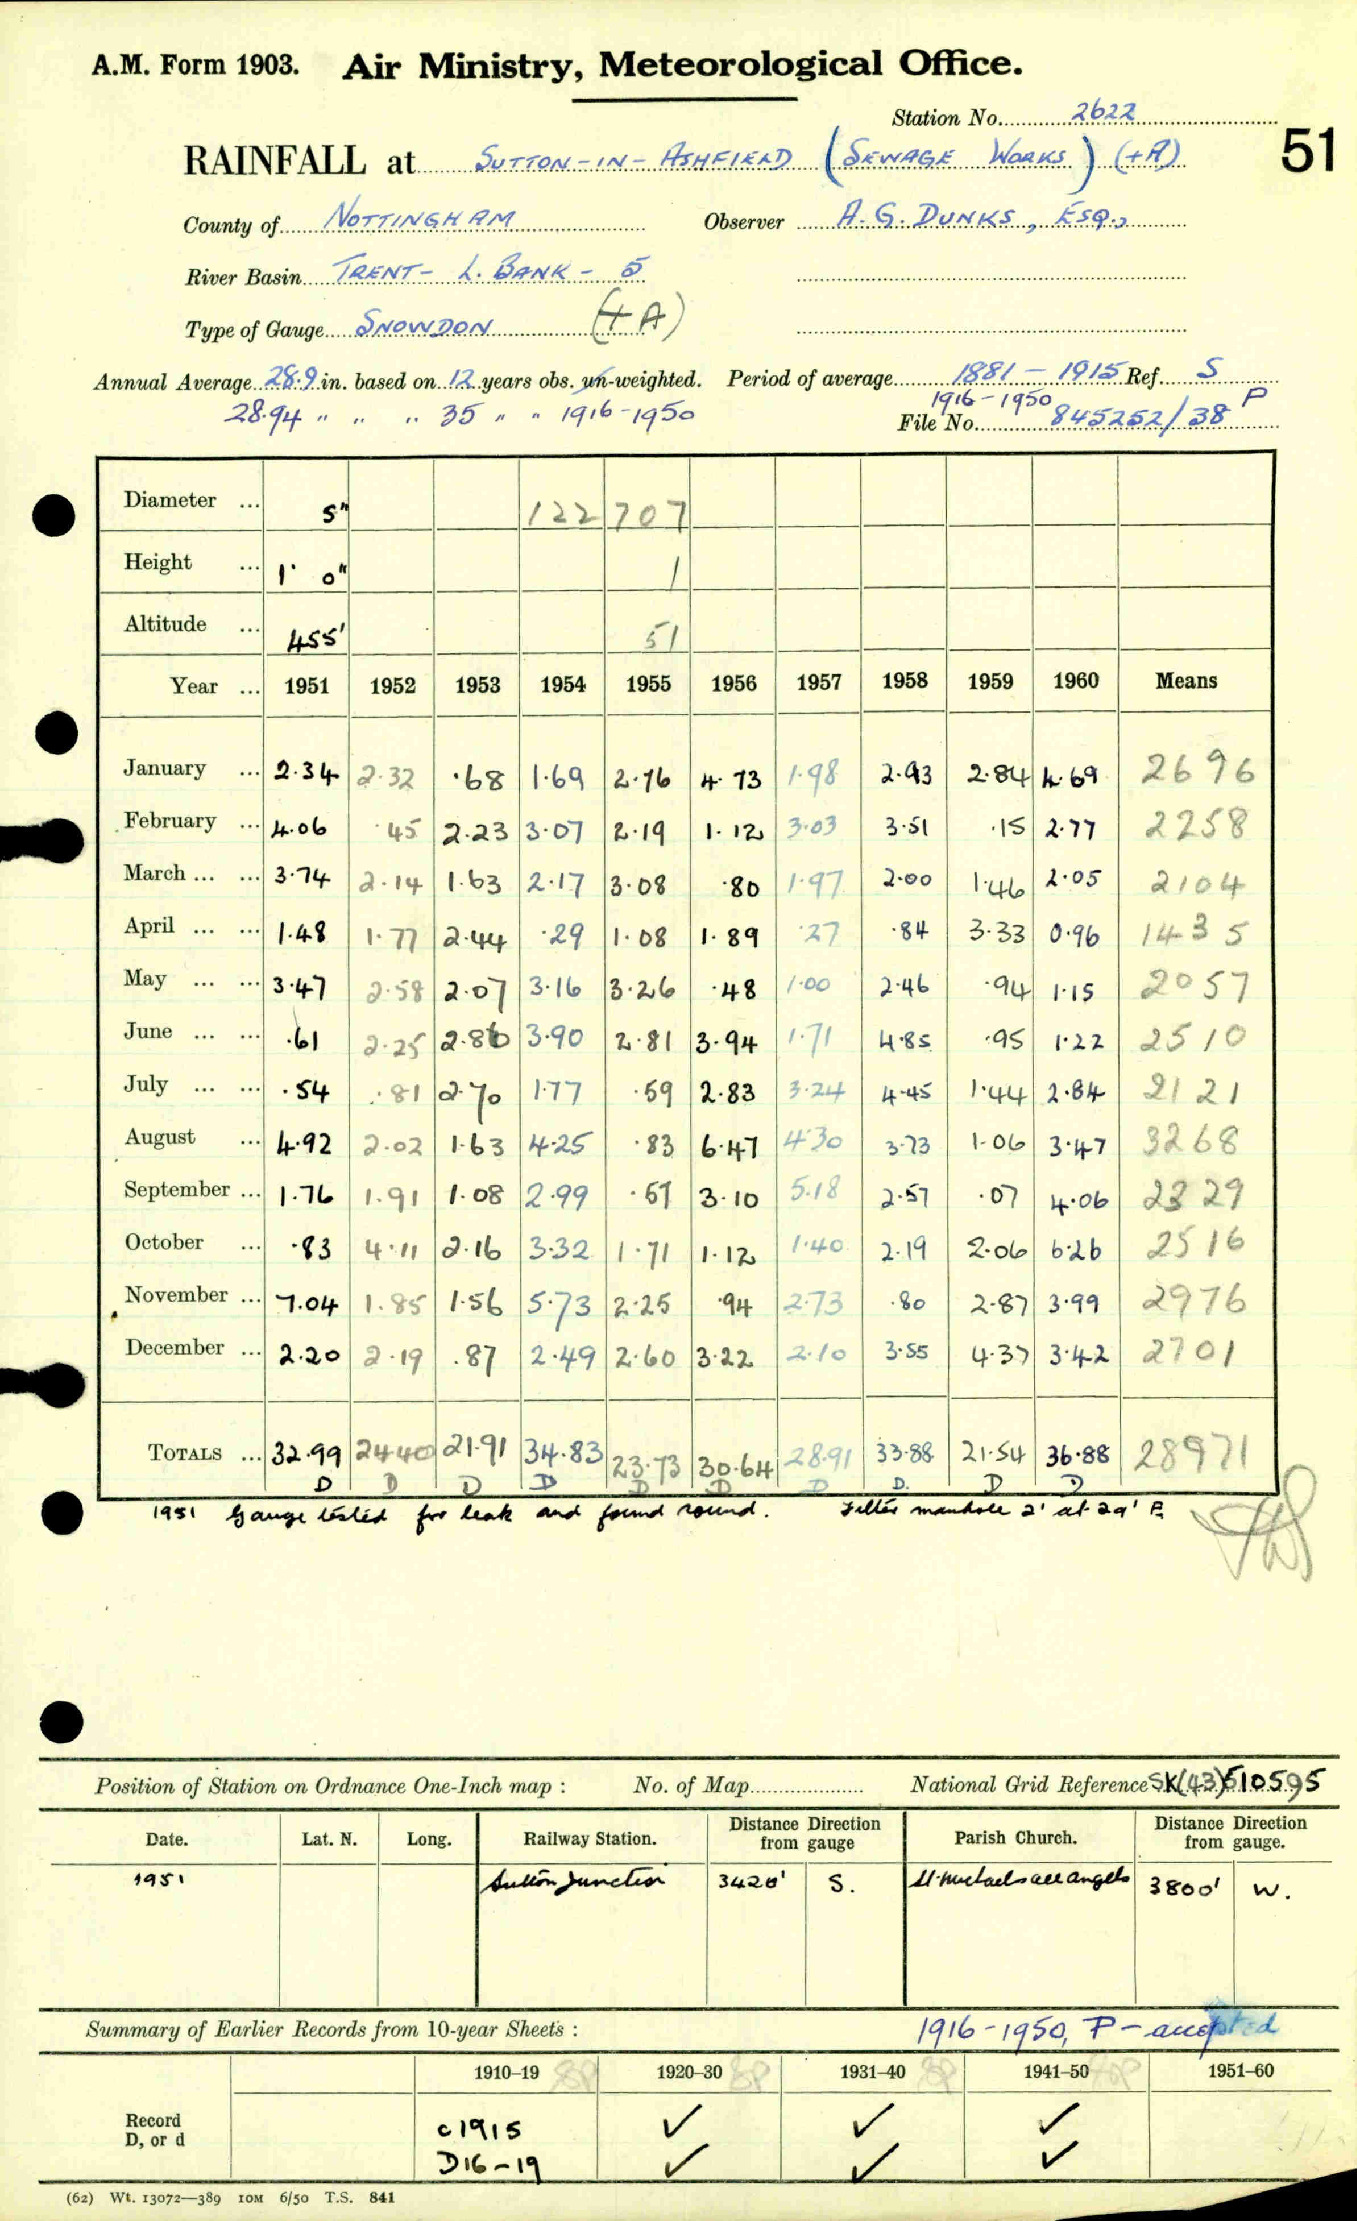 A.M. Form 1903. Air Ministry, Meteorological Office.
Station No. 2622
51
RAINFALL at SUTTON-IN-ASHFIELD (SEWAGE WORKS) (+A)
County of NOTTINGHAM Observer A.G. DUNKS, ESQ.,
River Basin TRENT- L. BANK - 5
Type of Gauge SNOWDON (+A)
Annual Average 28.9 in. based on 12 years obs. un-weighted. Period of average 1881 - 1915 Ref. S
28.94 " " " 35 " " 1916-1950 1916-1950 P
File No. 845252/38
Diameter ... 5" 122 707
Height ... 1' 0" 1
Altitude ... 455' 51
Year ... 1951 1952 1953 1954 1955 1956 1957 1958 1959 1960 Means
January ... 2.34 2.32 .68 1.69 2.76 4.73 1.98 2.93 2.84 4.69 2696
February ... 4.06 .45 2.23 3.07 2.19 1.12 3.03 3.51 .15 2.77 2258
March ... ... 3.74 2.14 1.63 2.17 3.08 .80 1.97 2.00 1.46 2.05 2104
April ... ... 1.48 1.77 2.44 .29 1.08 1.89 .27 .84 3.33 0.96 1435
May ... ... 3.47 2.58 2.07 3.16 3.26 .48 1.00 2.46 .94 1.15 2057
June ... ... .61 2.25 2.86 3.90 2.81 3.94 1.71 4.85 .95 1.22 2510
July ... ... .54 .81 2.70 1.77 .59 2.83 3.24 4.45 1.44 2.84 2121
August ... 4.92 2.02 1.63 4.25 .83 6.47 4.30 3.73 1.06 3.47 3268
September ... 1.76 1.91 1.08 2.99 .57 3.10 5.18 2.57 .07 4.06 2329
October ... .83 4.11 2.16 3.32 1.71 1.12 1.40 2.19 2.06 6.26 2516
November ... 7.04 1.85 1.56 5.73 2.25 .94 2.73 .80 2.87 3.99 2976
December ... 2.20 2.19 .87 2.49 2.60 3.22 2.10 3.55 4.37 3.42 2701
TOTALS ... 32.99 24.40 21.91 34.83 23.73 30.64 28.91 33.88 21.54 36.88 28971
D D D D D D D D. D D
1951 Gauge tested for leak and found sound. Filter manhole 2' at 29' E.
Position of Station on Ordnance One-Inch map : No. of Map National Grid Reference SK(43)510595
Date. Lat. N. Long. Railway Station. Distance Direction from gauge Parish Church. Distance Direction from gauge.
1951 Sutton Junction 3420' S. St. Michael & all angels 3800' W.
Summary of Earlier Records from 10-year Sheets : 1916-1950, P-accepted
1910-19 1920-30 1931-40 1941-50 1951-60
Record c1915 ✓ ✓ ✓
D, or d D16-19 ✓ ✓ ✓
(62) Wt. 13072—389 10M 6/50 T.S. 841